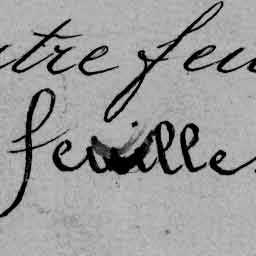 utre feu
feuille